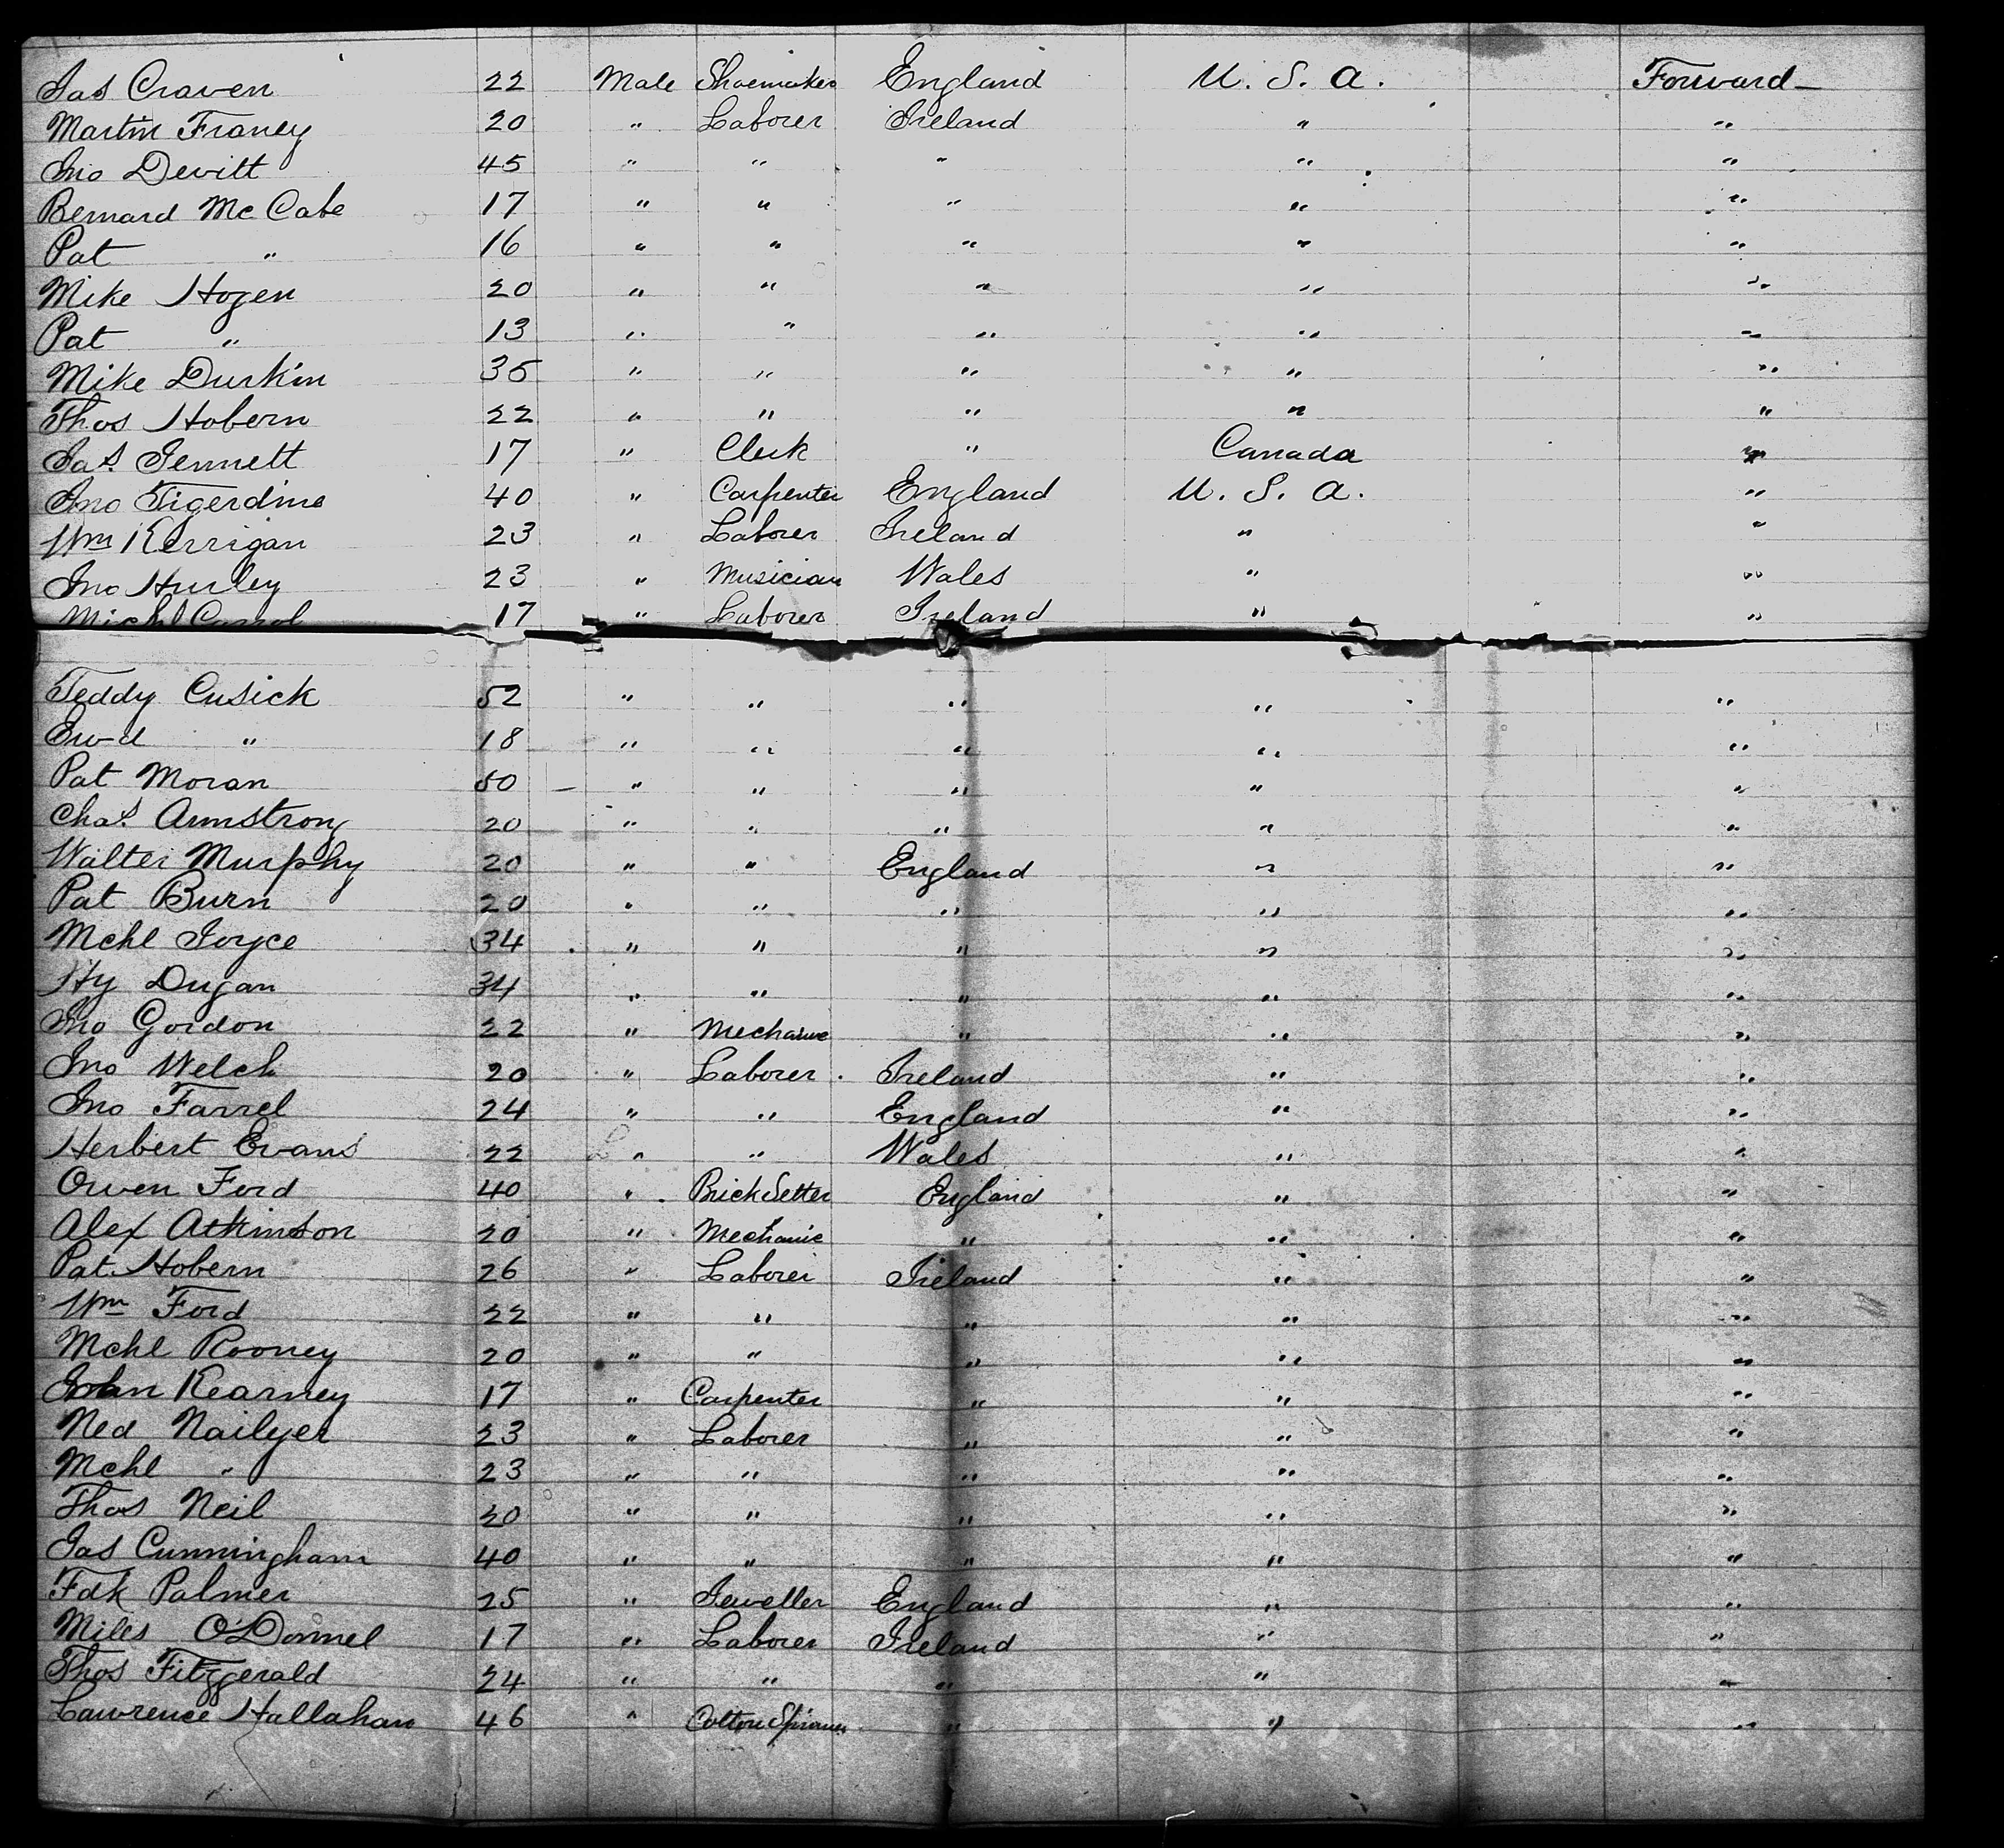 Jas Craven 22 Male Shoemaker England U. S. A. Forward
Martin Franey 20 " Laborer Ireland " "
Jno Devitt 45 " " " " "
Bernard McCabe 17 " " " " "
Pat " 16 " " " " "
Mike Hogen 20 " " " " "
Pat " 13 " " " " "
Mike Durkin 35 " " " " "
Thos Hobern 22 " " " " "
Jas. Jennett 17 " Clerk " Canada "
Jno Tigerdine 40 " Carpenter England U. S. A. "
Wm Kerrigan 23 " Laborer Ireland " "
Jno Hurley 23 " Musician Wales " "
Michl Carrol 17 " Laborer Ireland " "
Teddy Cusick 52 " " " " "
Ewd " 18 " " " " "
Pat Moran 50 " " " " "
Chas. Armstrong 20 " " " " "
Walter Murphy 20 " " England " "
Pat Burn 20 " " " " "
Mchl Joyce 34 " " " " "
Hy Dugan 34 " " " " "
Jno Gordon 22 " Mechanic " " "
Jno Welch 20 " Laborer Ireland " "
Jno Farrel 24 " " England " "
Herbert Evans 22 " " Wales " "
Owen Ford 40 " Brick Setter England " "
Alex Atkinson 20 " Mechanic " " "
Pat Hobern 26 " Laborer Ireland " "
Wm Ford 22 " " " " "
Mchl Rooney 20 " " " " "
John Kearney 17 " Carpenter " " "
Ned Nailyer 23 " Laborer " " "
Mchl " 23 " " " " "
Thos Neil 20 " " " " "
Jas Cunningham 40 " " " " "
Fdk Palmer 25 " Jeweller England " "
Miles O'Donnel 17 " Laborer Ireland " "
Thos Fitzgerald 24 " " " " "
Lawrence Hallahan 46 " Cotton Spinner " " "